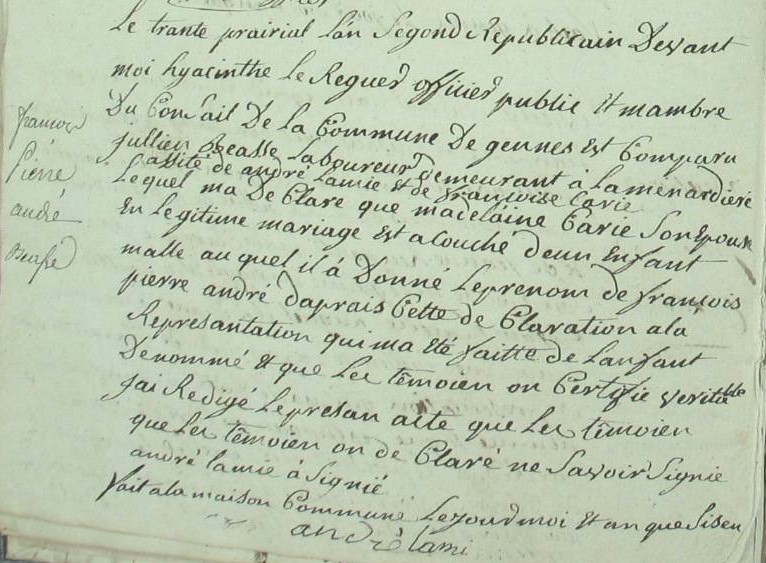 Le trante prairial Lan Segond Republicain Devant
moi hyacinthe Le Reguer officier public Et mambre
Du Consail De La Commune De gennes Est Comparu
jullien Beasse Laboureur demeurant à La menardiere
assité de andré Lamie et de françoise Carie
Lequel ma De Clare que madelaine Carie Son Epouse
En Legitime mariage Est acouché deun Enfant
malle au quel il à Donné Le prenom de françois
pierre andré daprais Cette de Claration a la
Represantation qui ma Eté faitte de Lanfant
Denommé Et que Les têmoien on Certifie veritable
jai Redigé Le presan acte que Les têmoien
que Les têmoien on de Claré ne Savoir Signie
andré lamie à Signié
fait a la maison Commune Le jour moi Et an que Siseu
andré lami
françois
Pierre
andré